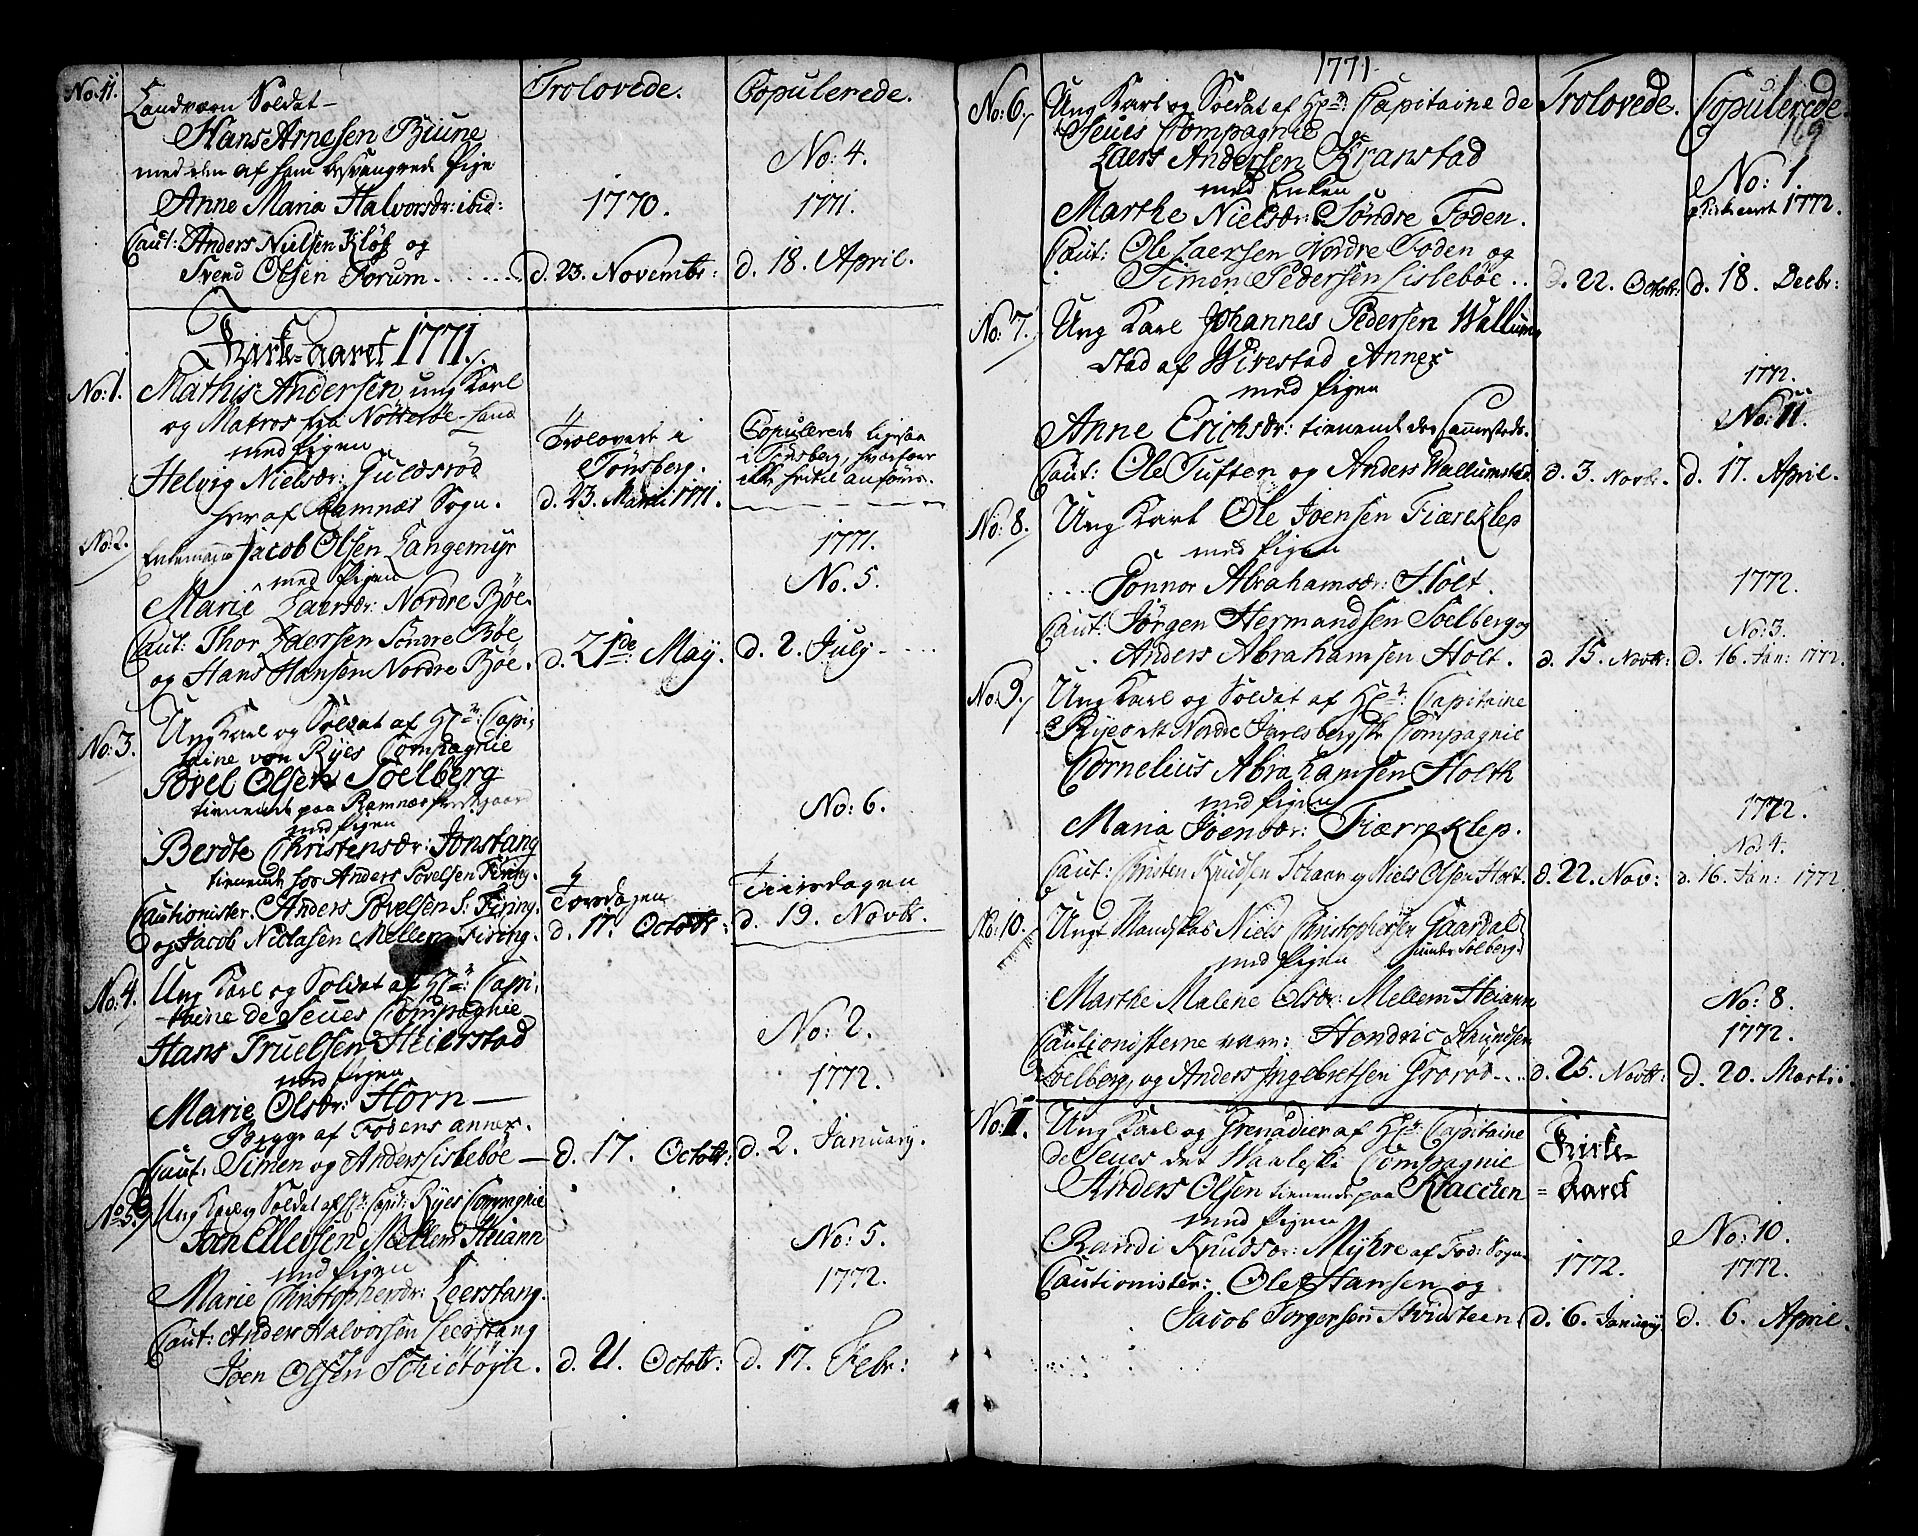 No. 11.
Landværn Soldat
Trolovede.
Copulerede.
Hans Arnesen Biune
med den af ham besvangrede Pige
No: 4.
Anne Maria Halvorsdr: ibid:
1770.
1771.
Caut: Anders Nielsen Kløf og
Svend Olsen Forum
d. 23. Novembr:
d. 18. April.
Kirke-Aaret 1771.
No: 1.
Mathis Andersen ung Karl
og Matros fra Nötteröe-Land
med Pigen
Helvig Nielsdr: Guldsröd
her af Ramnæs Sogn.
Trolovede i
Tønsberg.
d. 23. Martii 1771.
Copulerede ligesaa
i Tønsberg, hvorfore
ikke hertil anføres.
No: 2.
Enkemand Jacob Olsen Langemyr
med Pigen
Marie Laersdr: Nordre Böe.
Caut: Thor Laersen Sondre Böe
og Hans Hansen Nordre Böe.
1771.
No. 5.
d. 21de May.
d. 2. July
No: 3.
Ung Karl og Soldat af Hr: Capi-
taine von Ryes Compagnie
Povel Olsen Soelberg
tienende paa Ramnæs Præstegaard
med Pigen
Berdte Christensdr: Jonstang
tienende hos Anders Povelsen Firing.
Cautionister. Anders Povelsen S: Firing.
og Jacob Niclasen Mellem Firing.
No: 6.
Torsdagen
d. 17. Octobr:
Tiirsdagen
d. 19. Novbr.
No: 4.
Ung Karl og Soldat af Hr: Capi-
taine de Seues Compagnie
Hans Truelsen Heierstad
med Pigen
Marie Olsdr: Horn
Begge af Fodens annex.
Caut: Simen og Anders Lislebøe
No: 2.
1772.
d. 17. Octobr:
d. 2. January.
No: 5.
Ung Karl og Soldat af Hr: Capt: Ryes Compagnie
Joen Ellevsen Mellem Heiann
med Pigen
Marie Christophersdr: Leerstang.
Caut: Anders Halvorsen Leerstang
Joen Olsen
No: 5.
1772.
d. 21. Octobr:
d. 17. Febr:
1771.
169
No: 6.
Ung Karl og Soldat af Hr: Capitaine de
Seues Compagnie
Laers Andersen Kranstad
med Enken
Marthe Nielsdr: Søndre Foden.
Caut: Ole Laersen Nordre Foden og
Simon Pedersen Lislebøe
Trolovede.
Copulerede.
No: 1
Kirkeaaret 1772.
d. 22. Octobr:
d. 18. Decbr:
No: 7.
Ung Karl Johannes Pedersen Wallum-
stad af Wivestad Annex
med Pigen
Anne Erichsdr: tienende der sammesteds.
Caut: Ole Tuften og Anders Wallumstad.
1772.
No: 11.
d. 3. Novbr.
d. 17. April.
No: 8.
Ung Karl Ole Joensen Fiæreklep
med Pigen
Gonnor Abrahamsdr: Holt.
Caut: Jörgen Hermandsen Soelberg og
Anders Abrahamsen Holt.
1772.
No: 3.
d. 15. Novbr:
d. 16. Jan: 1772.
No: 9.
Ung Karl og Soldat af Hr: Capitaine
Ryes Nordre Jarlsbergske Compagnie
Cornelius Abrahamsen Holth
med Pigen
Maria Joensdr: Fiærreklep.
Caut: Christen Knudsen og Niels Olsen Holt.
1772.
No. 4.
d. 22. Nov:
d. 16. Jan: 1772.
No: 10.
Ungt Mandskab Niels Christophersen Gaardal
under Solberg
med Pigen
Marthe Malene Olsdr: Mellem Heiann
Cautionisterne vare: Hendric Amundsen
Soelberg, og Anders Ingebretsen Grorød
No: 8.
1772.
d. 25. Novbr:
d. 20. Martii
No. 11.
Ung Karl og Grenadier af Hr: Capitaine
de Seues det Waaleske Compagnie
Anders Olsen tienende paa Klaccken
med Pigen
Randi Knudsdr: Myhre af Fod: Sogn
Cautionister: Ole Hansen og
Jacob Jorgensen Hvidsteen
Kirke-
Aaret
1772.
No: 10.
1772.
d. 6. January
d. 6. April.